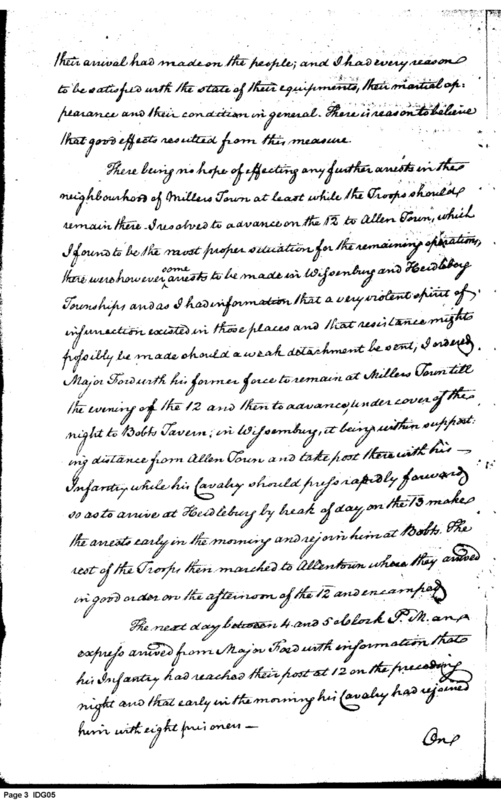 their arrival had made on the people; and I had every reason
to be satisfied with the state of their equipments, their martial ap:
pearance and their condition in general. There is reason to believe
that good effects resulted from this measure.
There being no hope of effecting any further arrests in the
neighbourhood of Millers Town at least while the Troops should
remain there. I resolved to advance on the 12 to Allen Town, which
I found to be the most proper situation for the remaining operations,
there were however some arrests to be made in Wissenburg and Heidleberg
Townships and as I had information that a very violent spirit of
insurrection existed in those places and that resistance might
possibly be made should a weak detachment be sent, I ordered
Major Ford with his former force to remain at Millers Town till
the evening of the 12 and then to advance, under cover of the
night to Bobbs Tavern; in Wissemburg, it being within support:
ing distance from Allen Town and take post there with his
Infantry while his Cavalry should press rapidly forward
so as to arrive at Heidleburg by break of day on the 13 make
the arrests early in the morning and rejoin him at Bobbs. The
rest of the Troops then marched to Allentown where they arrived
in good order on the afternoon of the 12 and encamped
The next day between 4 and 5 oClock P.M. an
express arrived from Major Ford with information that
his Infantry had reached their post at 12 on the preceding
night and that early in the morning his Cavalry had rejoined
him with eight prisoners —
One
Page 3 IDG05